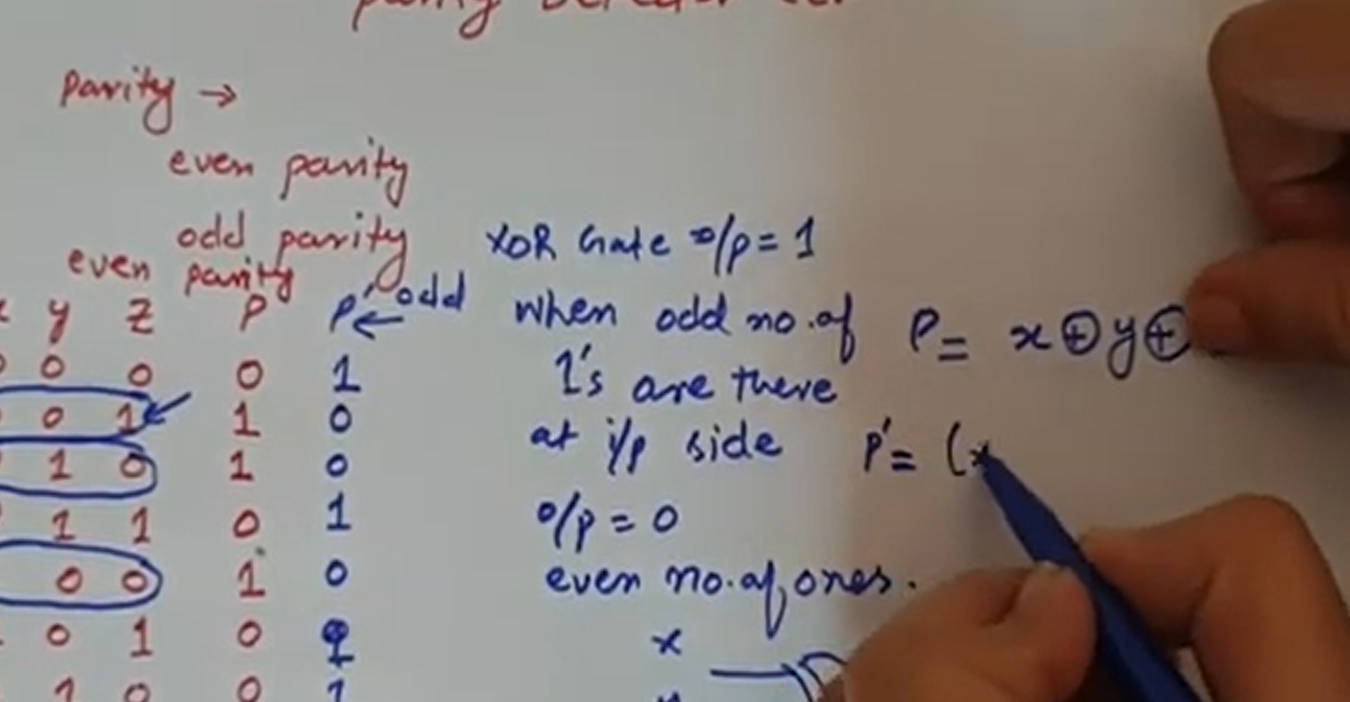 parity
Parity →
even parity
odd parity
even parity
y z P P' ← odd
0 0 0 1
0 1 1 0
1 0 1 0
1 1 0 1
0 0 1 0
0 1 0 1
1 0 0 1
XOR Gate o/p = 1
when odd no. of
1's are there
at i/p side
o/p = 0
even no. of ones.
x
P = x ⊕ y ⊕
P' = (x